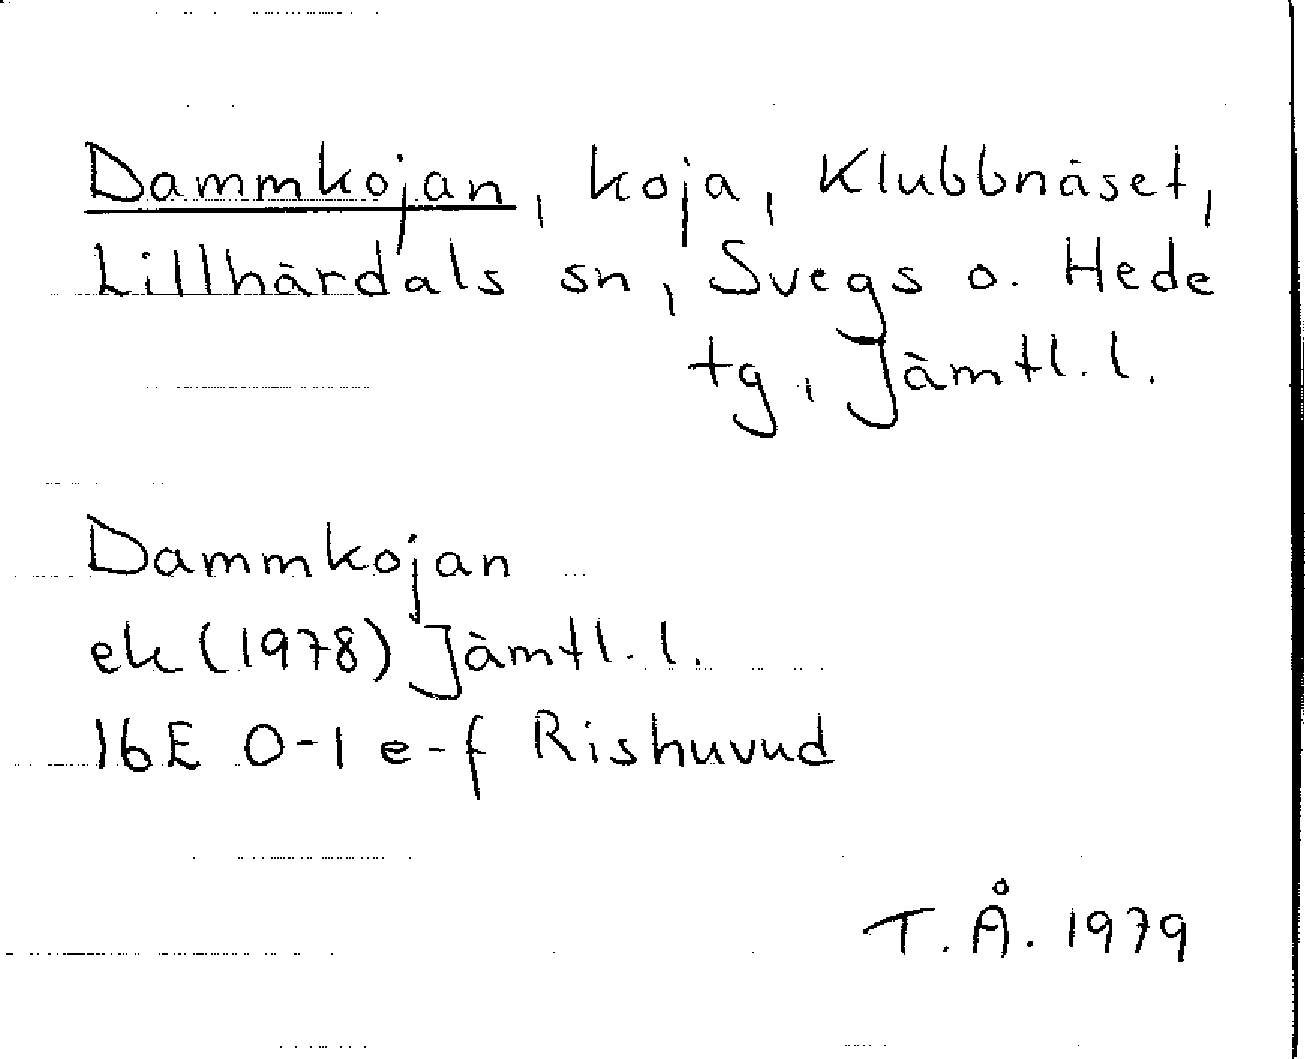 Dammkojan, koja, Klubbnäset,
Lillhärdals sn, Svegs o. Hede
tg, Jämtl. l.
Dammkojan
ek (1978) Jämtl. l.
16E 0-1 e-f Rishuvud
T. Å. 1979